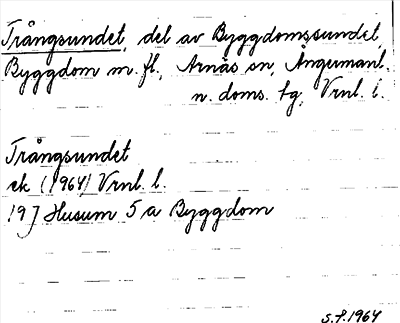 Trångsundet, del av Byggdomssundet
Byggdom m. fl., Arnäs sn, Ångermanl.
n. doms. tg, Vrnl. l.
Trångsundet
ek (1964) Vrnl. l.
19J Husum 5 a Byggdom
S.F. 1964